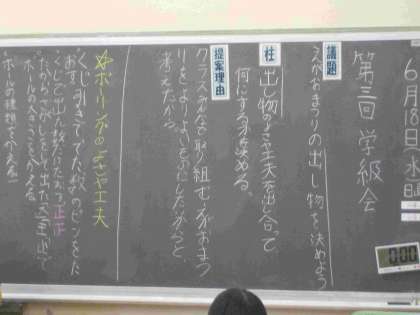 6月18日(水)
第三回 学級会
議題
えがおまつりの出し物を決めよう
柱
出し物のよさや工夫を出し合って、
何にするか決める。
提案理由
クラスみんなで取り組むえがおまつ
りをよりよいものにしたいと
考えたから。
☆ボーリングのよさや工夫
くじ引きででた数のピンをた
おす。
くじで出た数だけたおす 正正
ボールの大きさをかえる
ボールの種類をかえる
0:00